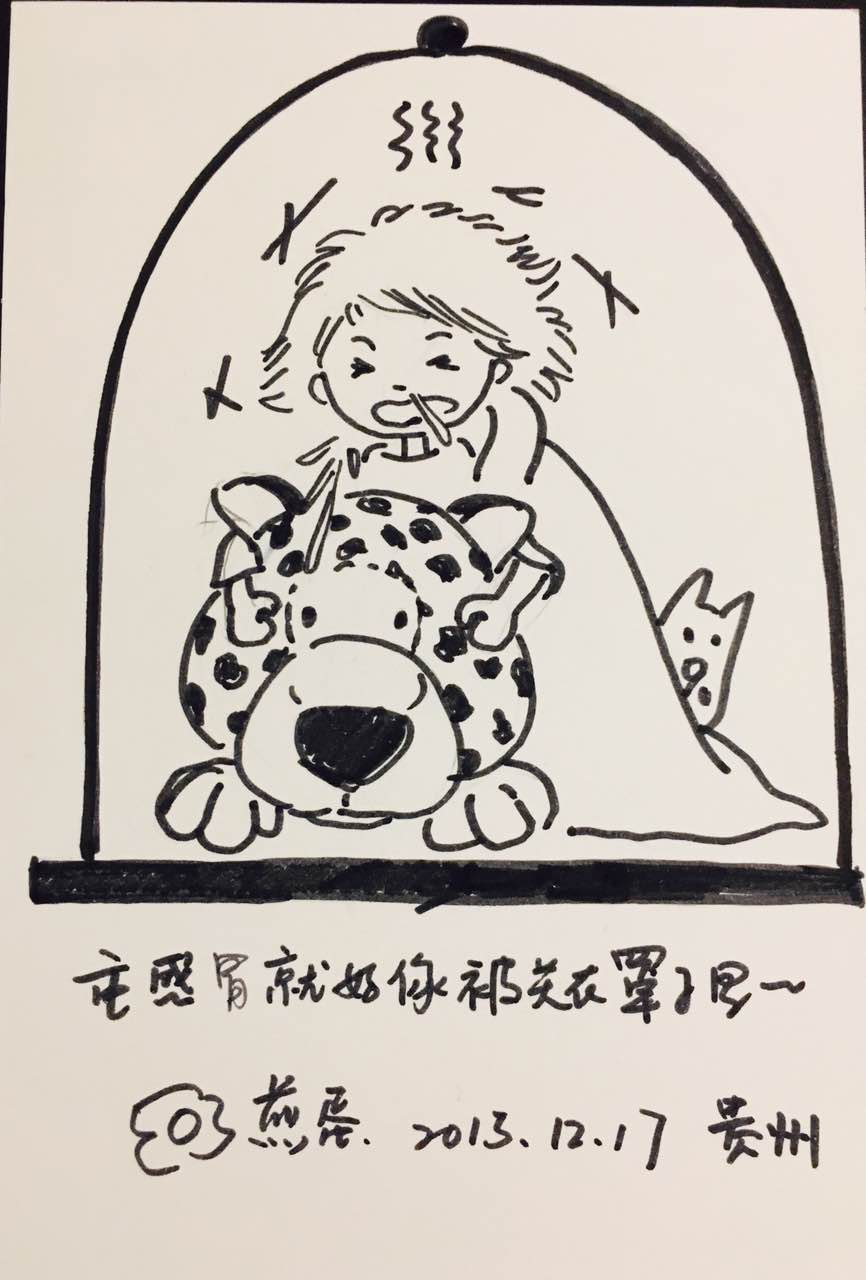 重感冒就好像被关在罩子里~
煎蛋. 2015.12.17 贵州